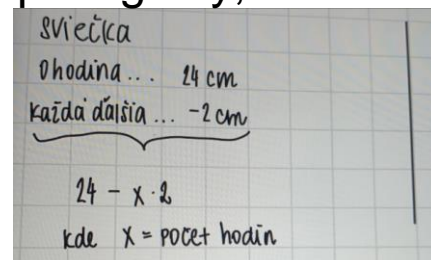 sviečka
0 hodina... 24 cm
každá ďalšia ... -2 cm
24 - x · 2
kde x = počet hodin